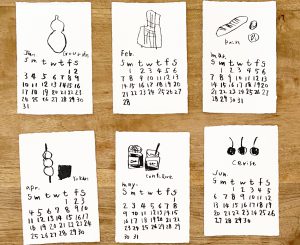 Jan.
S m t w t f S
1 2
3 4 5 6 7 8 9
10 11 12 13 14 15 16
17 18 19 20 21 22 23
24 25 26 27 28 29 30
31
Feb.
S m t w t f S
1 2 3 4 5 6
7 8 9 10 11 12 13
14 15 16 17 18 19 20
21 22 23 24 25 26 27
28
Pain
mar.
S m t w t f S
1 2 3 4 5 6
7 8 9 10 11 12 13
14 15 16 17 18 19 20
21 22 23 24 25 26 27
28 29 30 31
apr.
S m t w t f S
1 2 3
4 5 6 7 8 9 10
11 12 13 14 15 16 17
18 19 20 21 22 23 24
25 26 27 28 29 30
confiture
may.
S m t w t f S
1
2 3 4 5 6 7 8
9 10 11 12 13 14 15
16 17 18 19 20 21 22
23 24 25 26 27 28 29
30 31
cerise
Jun.
S m t w t f S
1 2 3 4 5
6 7 8 9 10 11 12
13 14 15 16 17 18 19
20 21 22 23 24 25 26
27 28 29 30